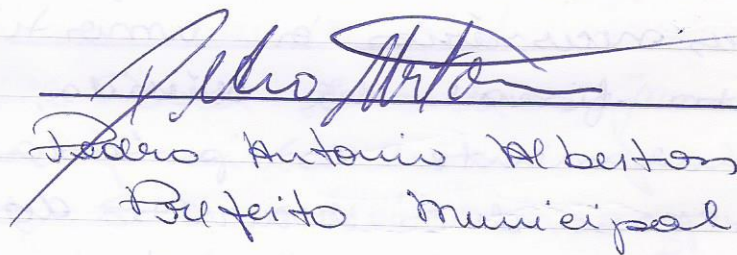 Pedro Antonio
Pedro Antonio Alberton
Prefeito Municipal